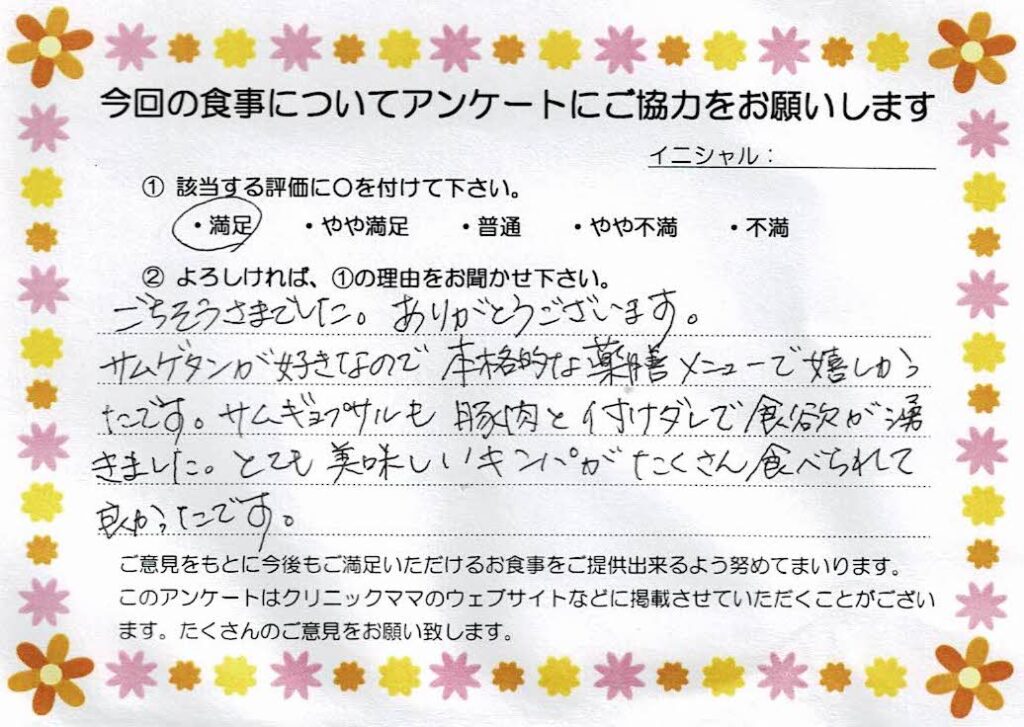 今回の食事についてアンケートにご協力をお願いします
イニシャル：
① 該当する評価に〇を付けて下さい。
・満足 ・やや満足 ・普通 ・やや不満 ・不満
② よろしければ、①の理由をお聞かせ下さい。
ごちそうさまでした。ありがとうございます。
サムゲタンが好きなので本格的な薬膳メニューで嬉しかっ
たです。サムギョプサルも豚肉と付けダレで食欲が湧
きました。とても美味しいキンパがたくさん食べられて
良かったです。
ご意見をもとに今後もご満足いただけるお食事をご提供出来るよう努めてまいります。
このアンケートはクリニックママのウェブサイトなどに掲載させていただくことがござい
ます。たくさんのご意見をお願い致します。